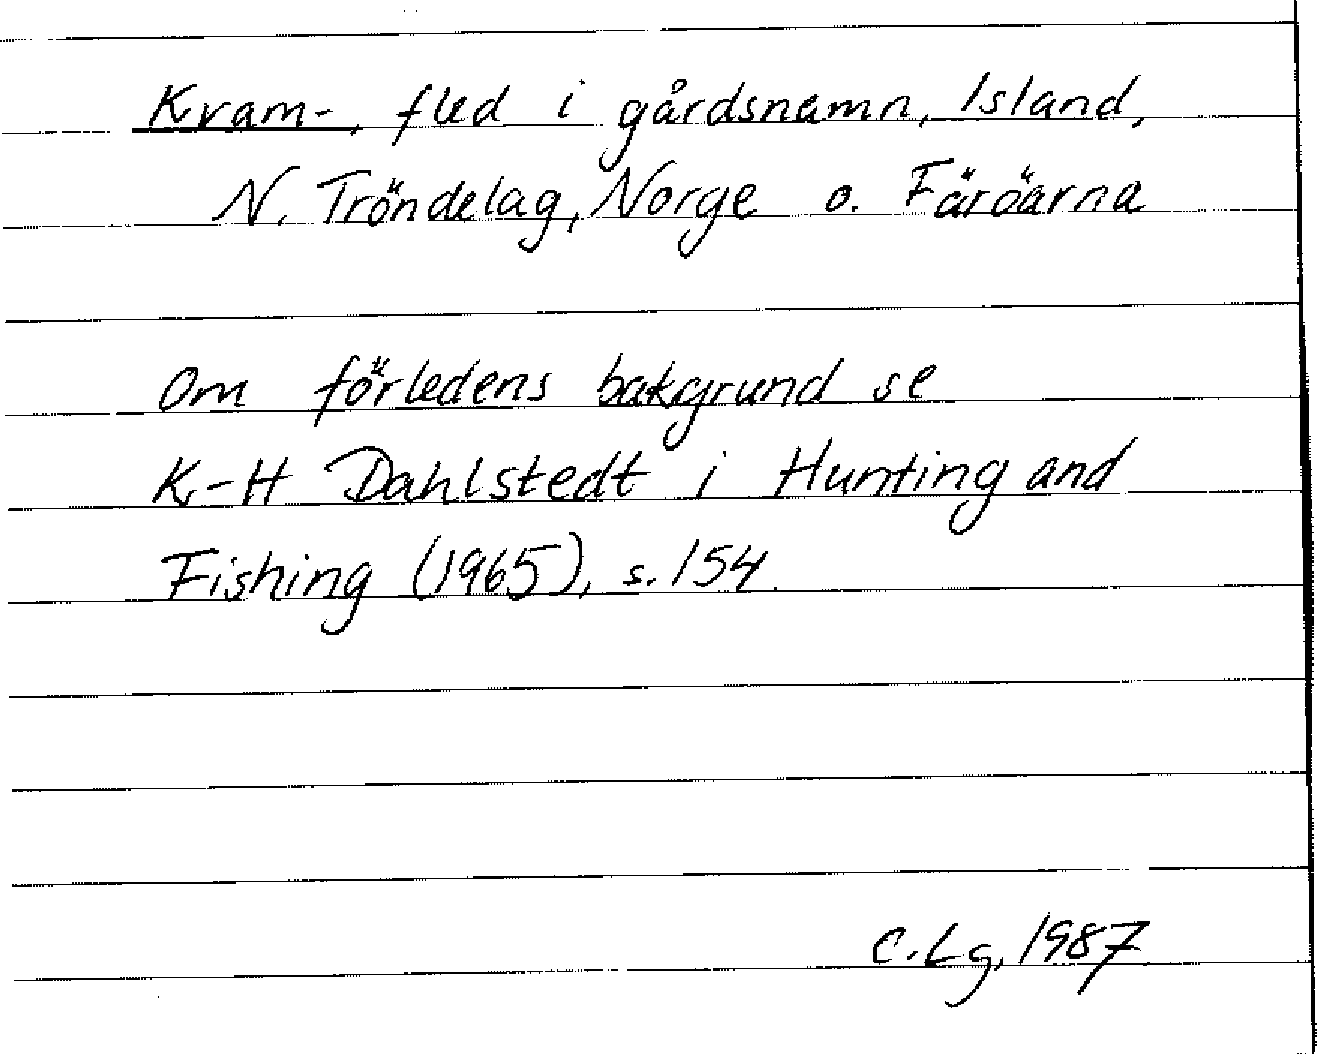 Kram-, fled i gårdsnamn, Island,
N. Tröndelag, Norge o. Färöarna
Om förledens bakgrund se
K-H Dahlstedt i Hunting and
Fishing (1965), s. 154.
C. Lg, 1987